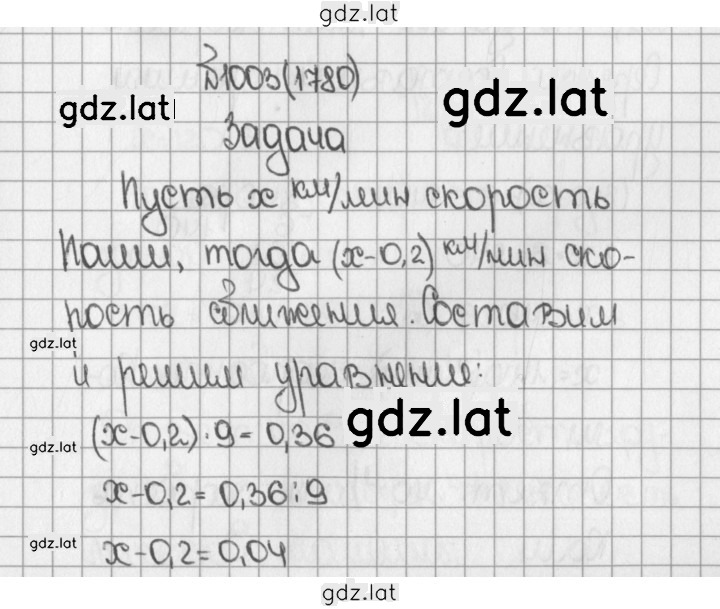 gdz.lat
№1003(1780)
gdz.lat
gdz.lat
Задача
Пусть x км/мин скорость
Паши, тогда (x-0,2) км/мин ско-
рость сближения. Составим
gdz.lat
и решим уравнение:
(x-0,2)·9=0,36
gdz.lat
gdz.lat
x-0,2=0,36:9
gdz.lat
x-0,2=0,04
gdz.lat